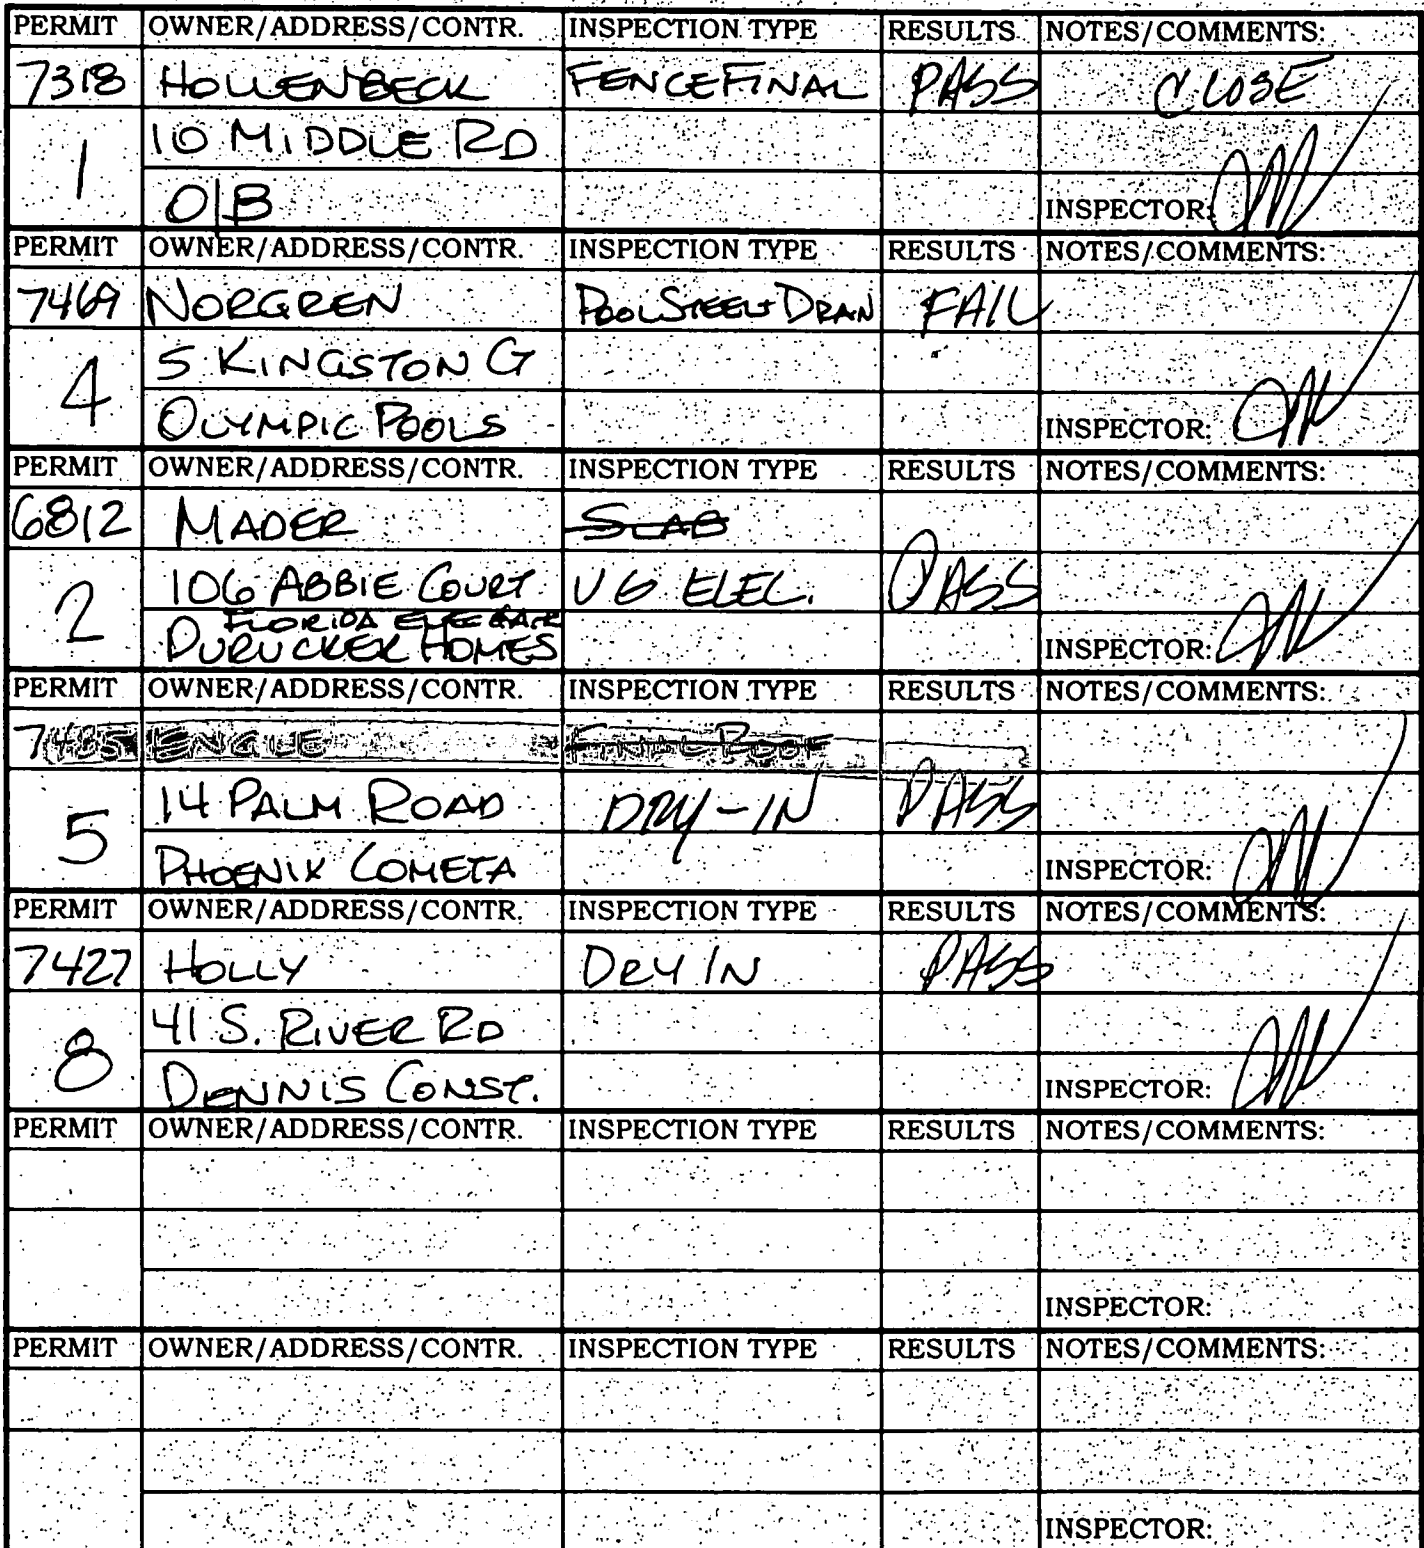 PERMIT OWNER/ADDRESS/CONTR. INSPECTION TYPE RESULTS NOTES/COMMENTS:
7318 HOLLENBECK FENCE FINAL PASS CLOSE
1 10 MIDDLE RD
O/B INSPECTOR:
PERMIT OWNER/ADDRESS/CONTR. INSPECTION TYPE RESULTS NOTES/COMMENTS:
7469 NORGREN POOL STEEL+DRAIN FAIL
4 5 KINGSTON CT
OLYMPIC POOLS INSPECTOR:
PERMIT OWNER/ADDRESS/CONTR. INSPECTION TYPE RESULTS NOTES/COMMENTS:
6812 MADER SLAB
2 106 ABBIE COURT UG ELEC. PASS
FLORIDA
HOMES INSPECTOR:
PERMIT OWNER/ADDRESS/CONTR. INSPECTION TYPE RESULTS NOTES/COMMENTS:
7485 ENGLE FINAL ROOF
5 14 PALM ROAD DRY-IN PASS
PHOENIX COMETA INSPECTOR:
PERMIT OWNER/ADDRESS/CONTR. INSPECTION TYPE RESULTS NOTES/COMMENTS:
7427 HOLLY DRY IN PASS
8 41 S. RIVER RD
DENNIS CONST. INSPECTOR:
PERMIT OWNER/ADDRESS/CONTR. INSPECTION TYPE RESULTS NOTES/COMMENTS:
INSPECTOR:
PERMIT OWNER/ADDRESS/CONTR. INSPECTION TYPE RESULTS NOTES/COMMENTS:
INSPECTOR: